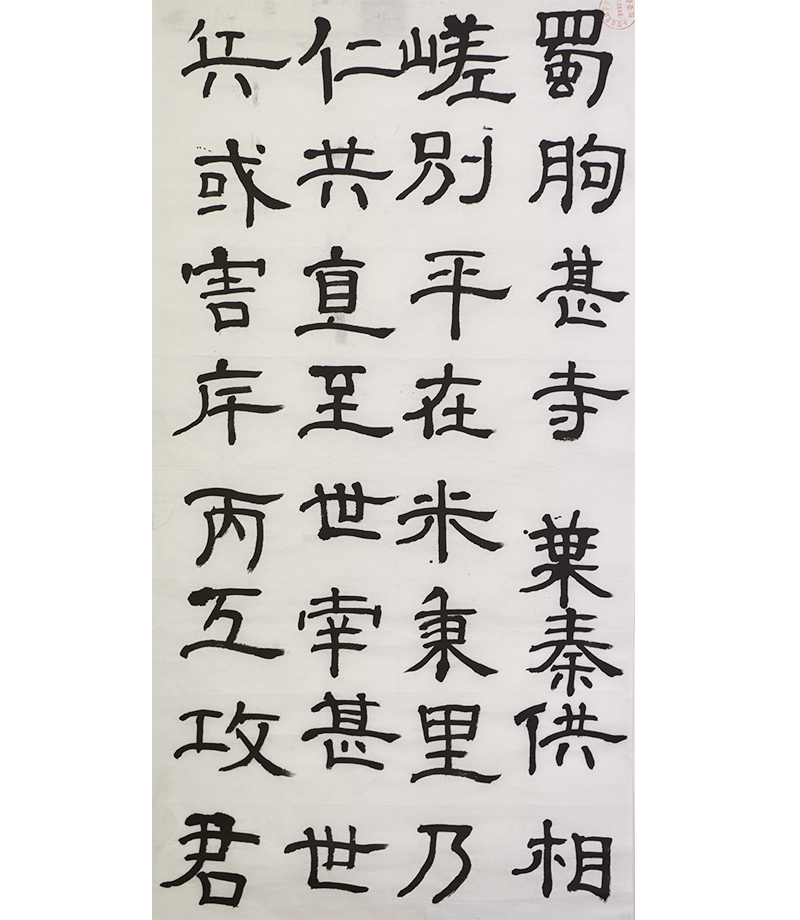 蜀朐甚寺葉秦供相
嵯別平在米秉里乃
仁共直至世宰甚世
兵或害岸丙互攻君